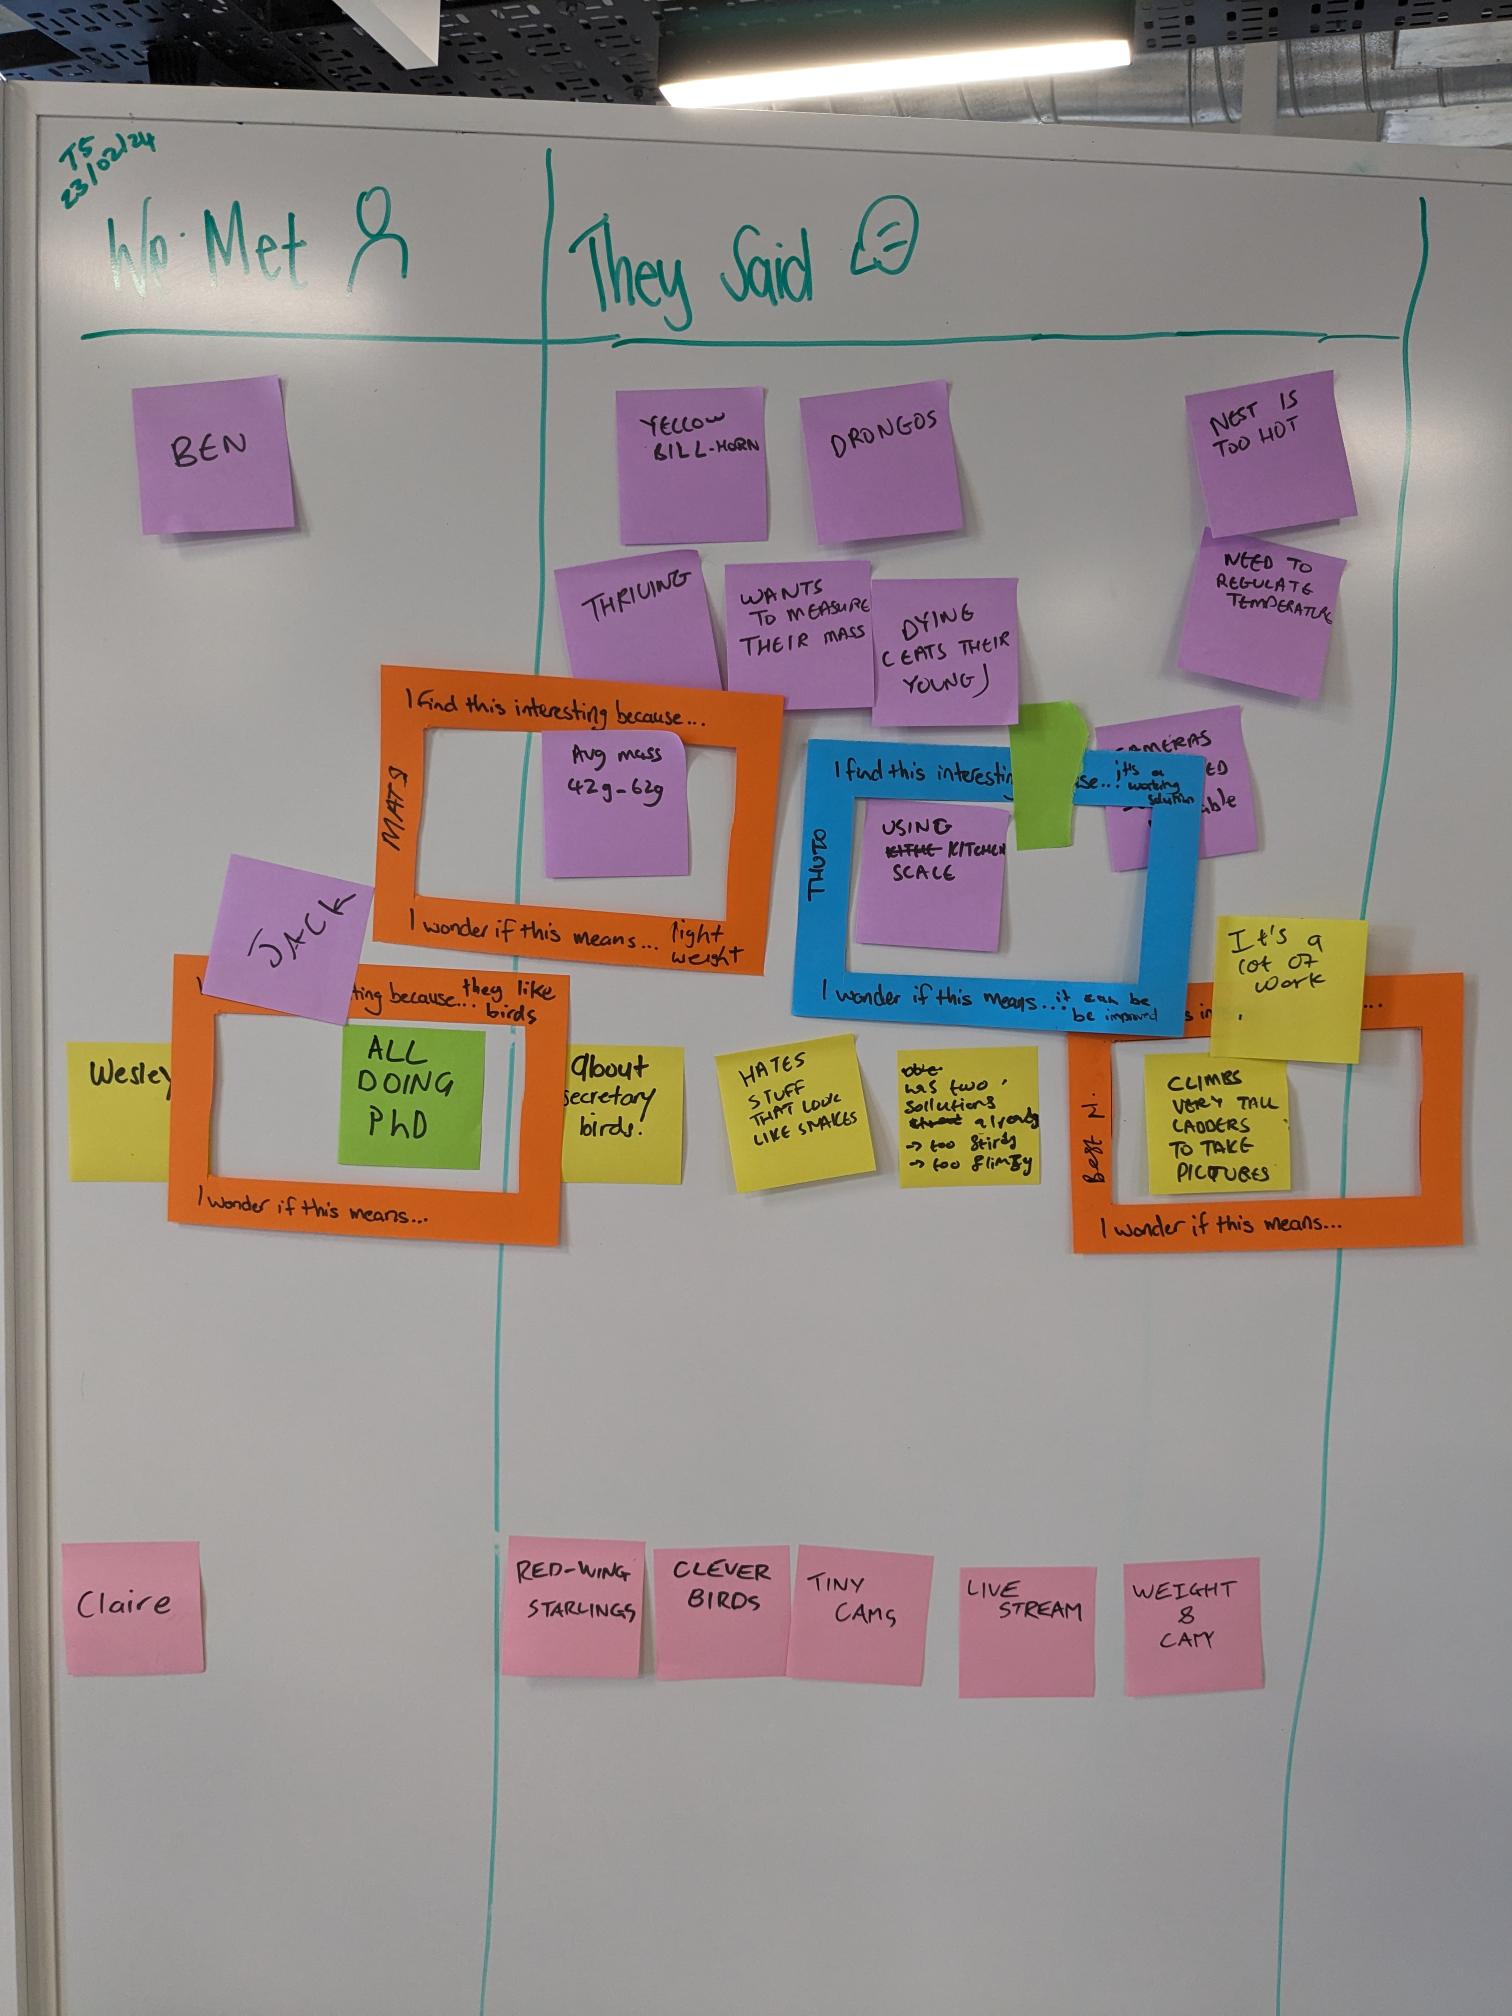 T5
23/02/24
We Met
They Said
BEN
YELLOW
BILL-HORN
DRONGOS
NEST IS
TOO HOT
THRIVING
WANTS
TO MEASURE
THEIR MASS
DYING
(EATS THEIR
YOUNG)
NEED TO
REGULATE
TEMPERATURE
I find this interesting because...
MATS
Avg mass
42g-62g
I wonder if this means... light
weight
I find this interesting
se... it's a
working
solution
THUTO
USING
KITCHEN
SCALE
I wonder if this means... it can be
be improved
CAMERAS
ED
able
JACK
ting because... they like
birds
Wesley
ALL
DOING
PhD
I wonder if this means...
about
secretary
birds!
HATES
STUFF
THAT LOOK
LIKE SNAKES
has two
sollutions
already
→ too stirdy
→ too flimsy
It's a
lot of
work
Best N.
CLIMBS
VERY TALL
LADDERS
TO TAKE
PICTURES
I wonder if this means...
Claire
RED-WING
STARLINGS
CLEVER
BIRDS
TINY
CAMS
LIVE
STREAM
WEIGHT
&
CAM